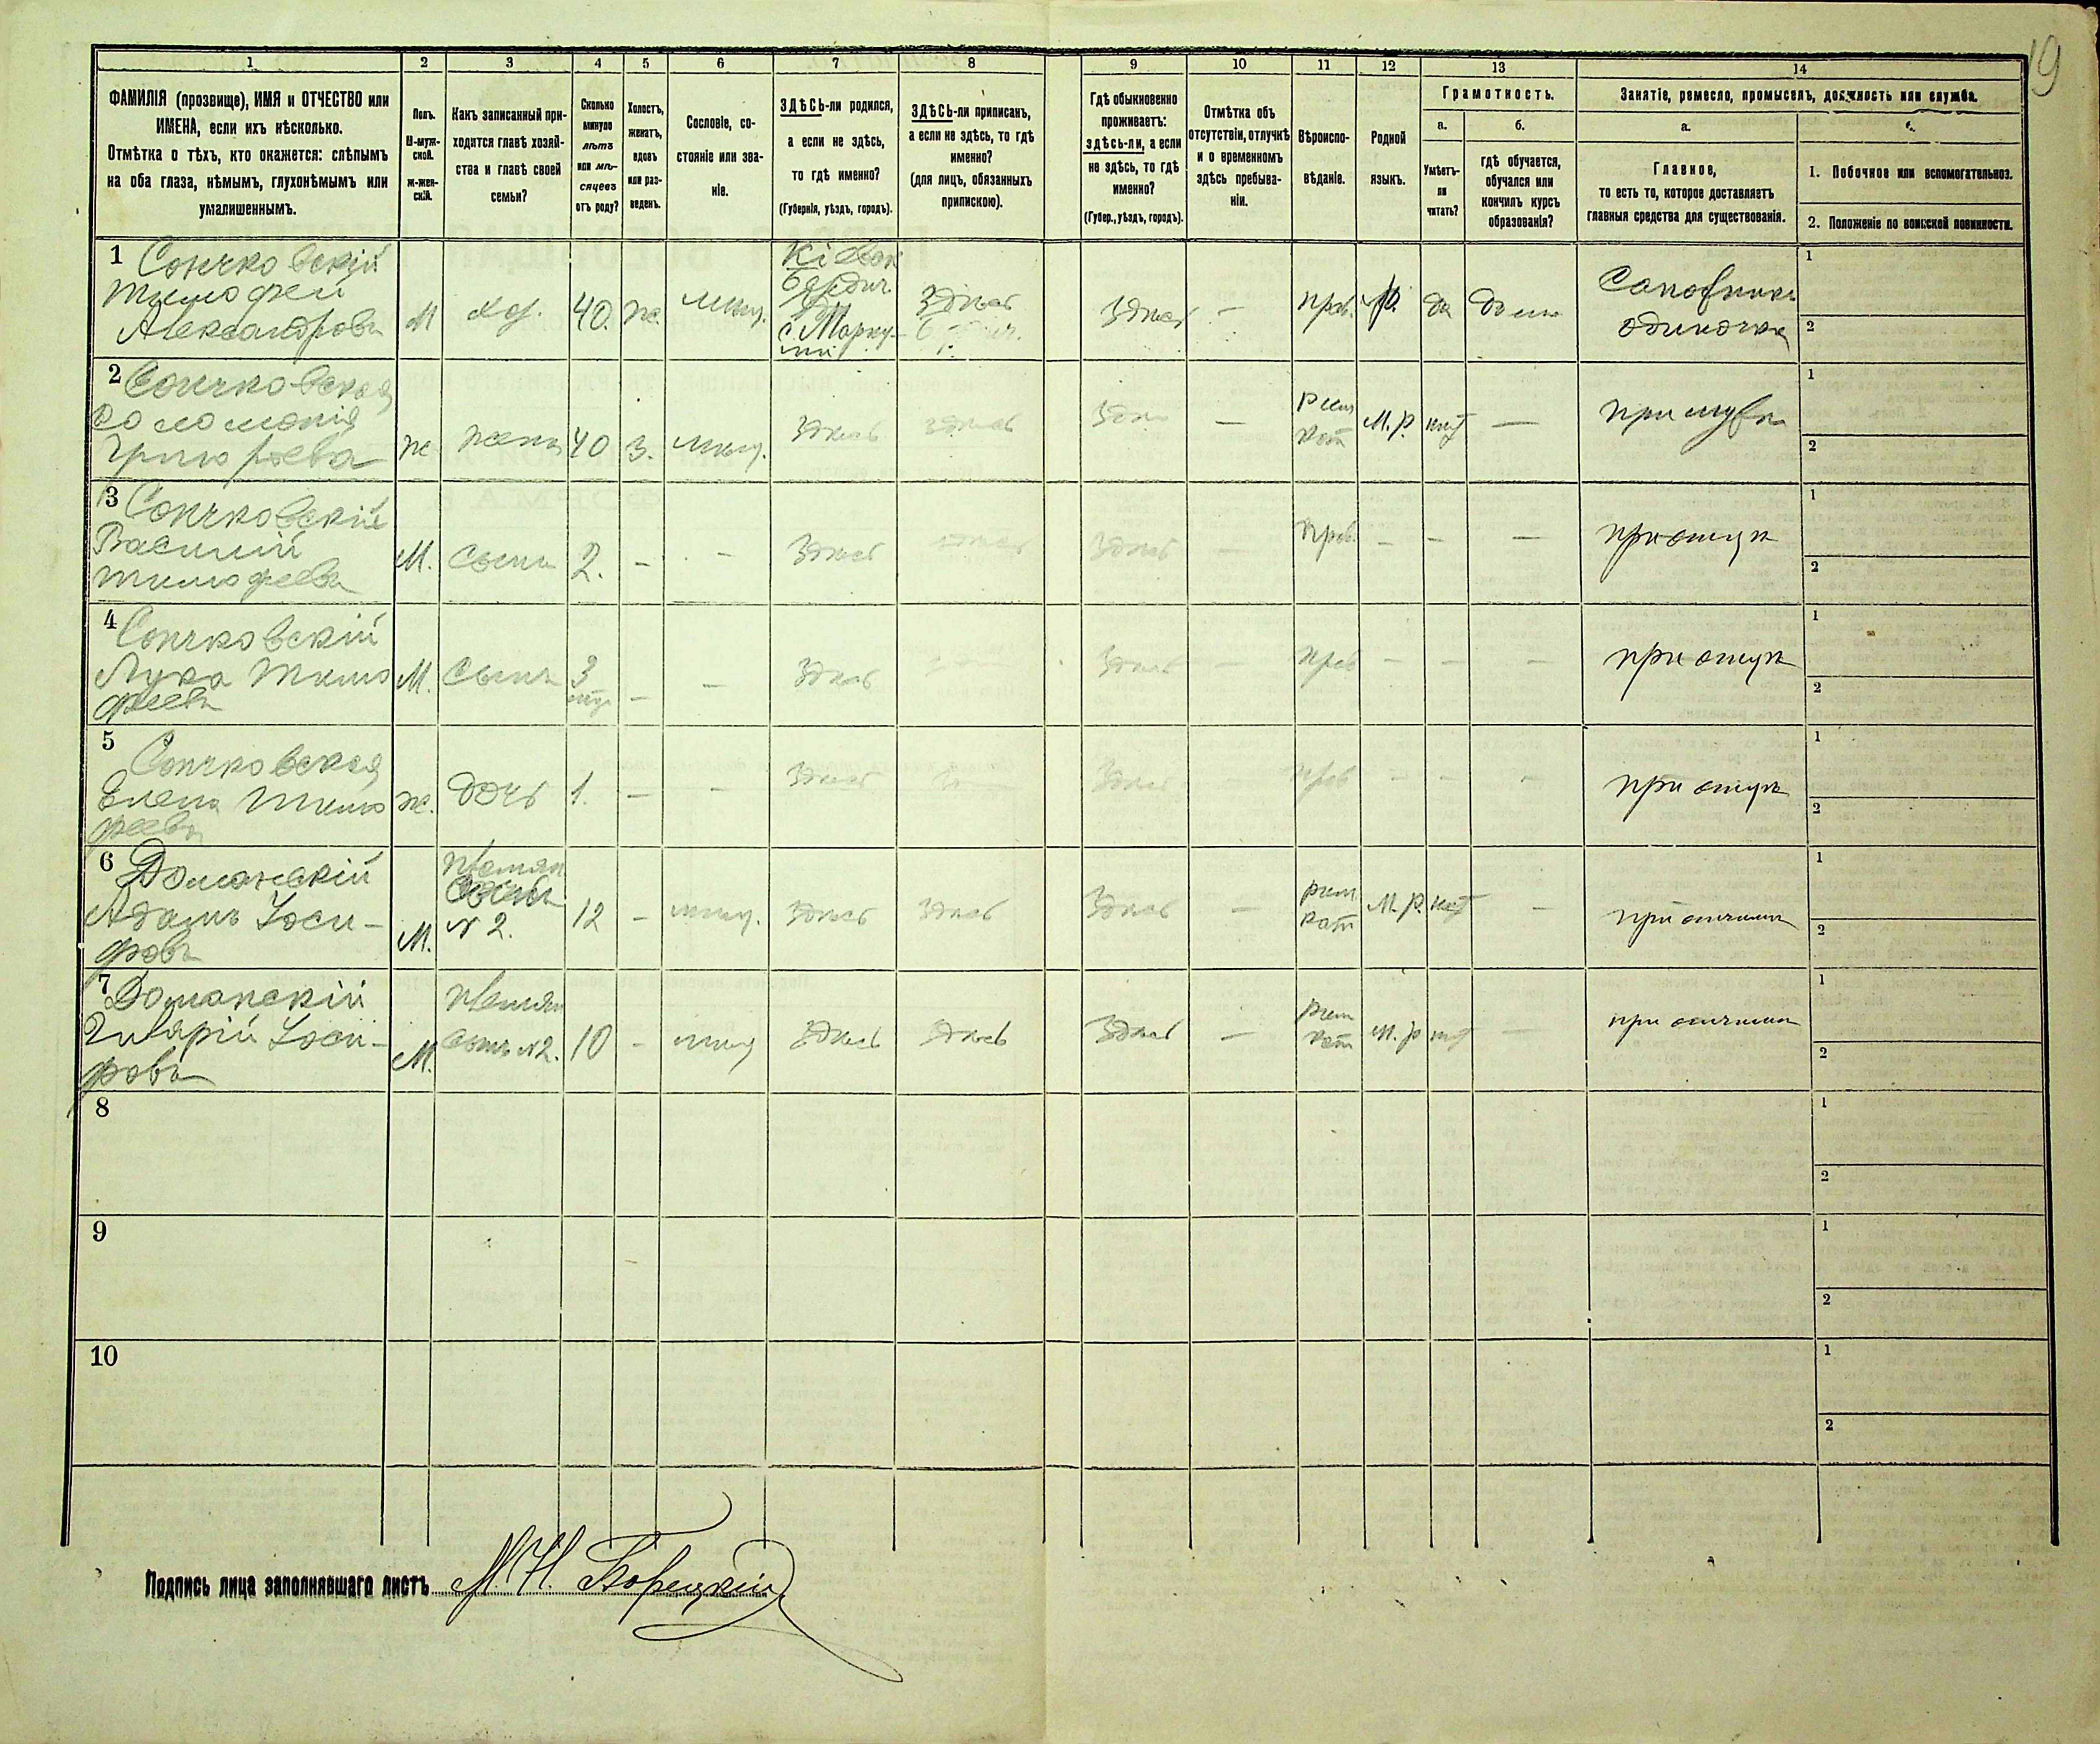 19
1 2 3 4 5 6 7 8 9 10 11 12 13 14
ФАМИЛІЯ (прозвище), ИМЯ и ОТЧЕСТВО или
ИМЕНА, если ихъ нѣсколько.
Отмѣтка о тѣхъ, кто окажется: слѣпымъ
на оба глаза, нѣмымъ, глухонѣмымъ или
умалишеннымъ.
Полъ.
М-муж-
ской.
ж-жен-
скій.
Какъ записанный при-
ходится главѣ хозяй-
ства и главѣ своей
семьи?
Сколько
минуло
лѣтъ
или мѣ-
сяцевъ
отъ роду?
Холостъ,
женатъ,
вдовъ
или раз-
веденъ.
Сословіе, со-
стояніе или зва-
ніе.
ЗДѢСЬ-ли родился,
а если не здѣсь,
то гдѣ именно?
(Губернія, уѣздъ, городъ).
ЗДѢСЬ-ли приписанъ,
а если не здѣсь, то гдѣ
именно?
(для лицъ, обязанныхъ
припискою).
Гдѣ обыкновенно
проживаетъ:
здѣсь-ли, а если
не здѣсь, то гдѣ
именно?
(Губер., уѣздъ, городъ).
Отмѣтка объ
отсутствіи, отлучкѣ
и о временномъ
здѣсь пребыва-
ніи.
Вѣроиспо-
вѣданіе.
Родной
языкъ.
Грамотность.
а.
Умѣетъ-
ли
читать?
б.
гдѣ обучается,
обучался или
кончилъ курсъ
образованія?
Занятіе, ремесло, промыселъ, должность или служба.
а.
Главное,
то есть то, которое доставляетъ
главныя средства для существованія.
1. Побочное или вспомогательное.
2. Положеніе по воинской повинности.
1
Тимофей
Александровъ
М
40.
ж.
мѣщ.
Кіевск
Здѣсь
Здѣсь
—
прав.
да
дома
Сапожникъ
одиночка
1
2
2
Соломонія
Григорьева
ж
жена
40
з.
мѣщ.
здѣсь
здѣсь
—
рим
кат
М. р.
нѣт
—
при мужѣ
1
2
3
Василій
Тимофеевъ
М.
сынъ
2.
-
-
здѣсь
здѣсь
прав.
-
-
-
при отцѣ
1
2
4
Лука Тимо
феевъ
М.
сынъ
3
-
-
здѣсь
здѣсь
прав
-
-
-
при отцѣ
1
2
5
Елена Тимо
феева
ж.
дочь
1.
-
-
здѣсь
здѣсь
прав
-
-
-
при отцѣ
1
2
6 Доманскій
Адамъ Іоси-
фовъ
М.
N 2.
12
-
мѣщ.
здѣсь
здѣсь
здѣсь
—
рим
кат
М. р.
нѣт
-
при отчимѣ
1
2
7 Доманскій
Іоси-
фовъ
М.
сынъ N2.
10
-
мѣщ
здѣсь
здѣсь
здѣсь
—
рим
кат
М. р
нѣт
-
при отчимѣ
1
2
8
1
2
9
1
2
10
1
2
Подпись лица заполнявшаго листъ М. Н. Борецкій